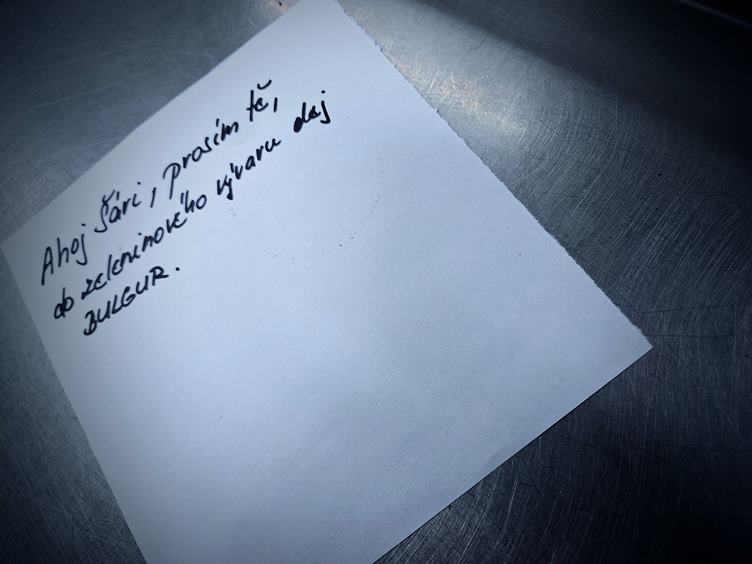 Ahoj Šári, prosím tě,
do zeleninového vývaru dej
BULGUR.